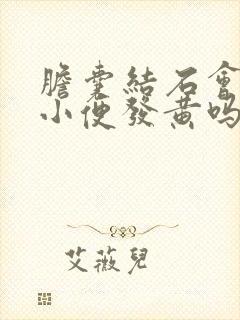 膽囊結石會
小便發黃嗎
艾薇兒